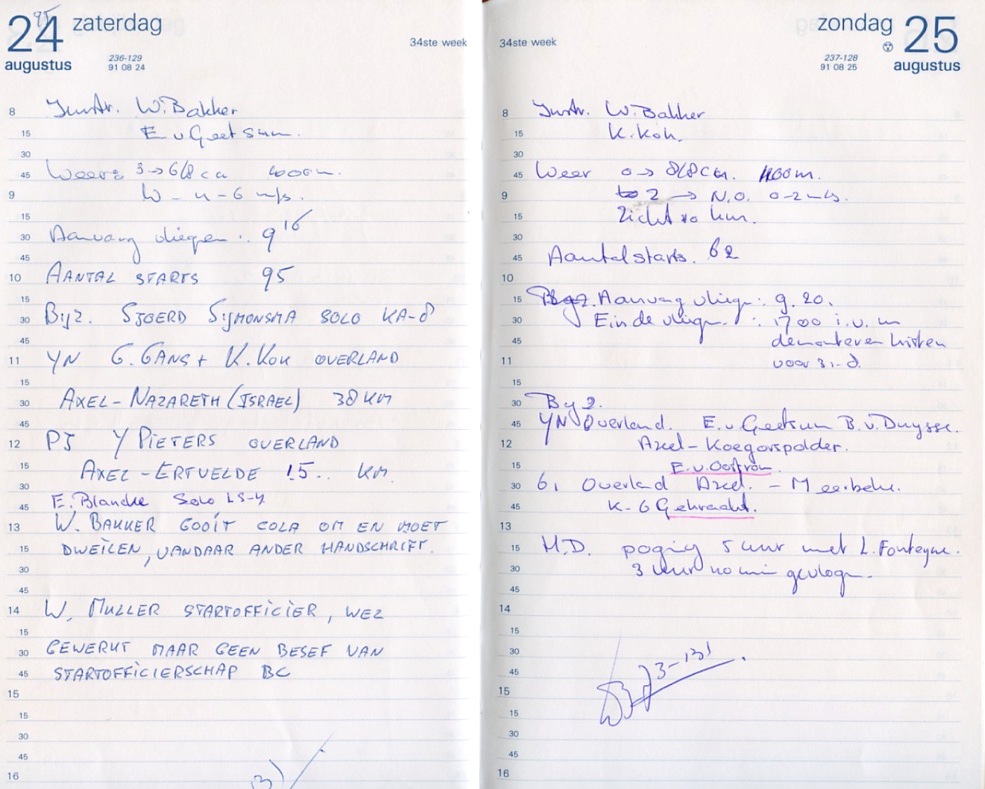 24 zaterdag
augustus
236-129
91 08 24
34ste week
8 Instr. W. Bakker
15 E v Geetsum.
30
45 Weer: 3→6/8 cu 1000m.
9 W - 4-6 m/s.
15
30 Aanvang vliegen: 9 16
45
10 AANTAL STARTS 95
15
30 Byz. SJOERD SIJMONSMA SOLO KA-8
45
11 YN G. GANS + K. KOK OVERLAND
15
30 AXEL-NAZARETH (ISRAEL) 38 KM
45
12 PJ Y PIETERS OVERLAND
15 AXEL-ERTVELDE 15.. KM.
30
45 E. Blancke Solo LS-4
13 W. BAKKER GOOIT COLA OM EN MOET
15 DWEILEN, VANDAAR ANDER HANDSCHRIFT.
30
45
14 W. MULLER STARTOFFICIER, WEL
15
30 GEWERKT MAAR GEEN BESEF VAN
45 STARTOFFICIERSCHAP BC
15
15
30
45
16
34ste week
zondag 25
augustus
237-128
91 08 25
8 Instr. W. Bakker
15 K. Kok.
30
45 Weer 0→ 8/8 cu. 1100m.
9 2 → N.O. 0-2 m/s.
15 Zicht 10 km.
30
45 Aantal starts. 62
10
15 Aanvang vliegn: 9.20.
30 Einde vliegn.: 1700 i.v.m
45 demonteren kisten
11 voor 3.-d.
15
30 Byz.
45 YN Overland. E. v Geetsum B. v. Duysse.
12 Axel-Koegorspolder.
15 E. v. Oostrom.
30 6, Overland Axel. - Meerbeke.
45 K-6 Gekraakt.
13
15 M.D. poging 5 uur met L. Fonteyne.
30 3 uur 10 min gevlogn.
45
14
15
30
45 73-131
15
15
30
45
16